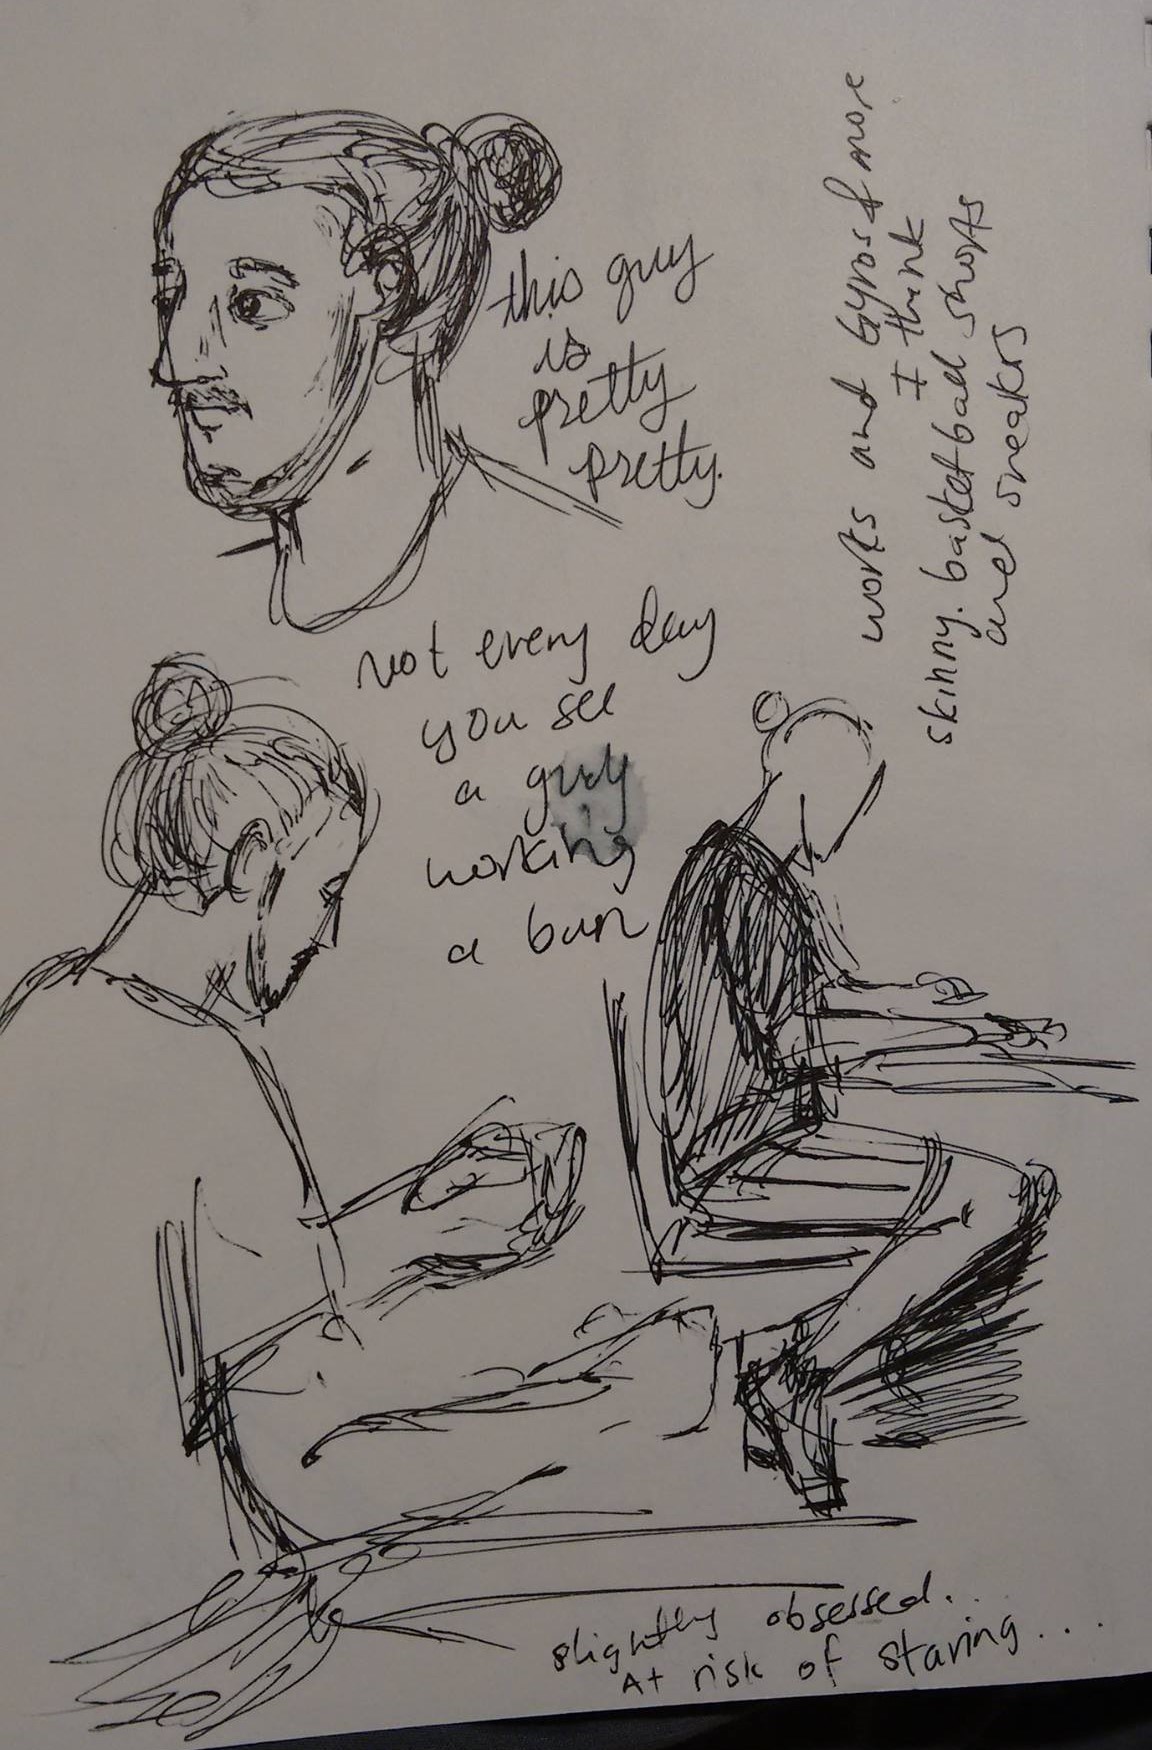 this guy
is
pretty
pretty.
works and Gyros & more
I think
skinny. basket ball shorts
and sneakers
not every day
you see
a guy
working
a bun
slightly obsessed...
At risk of staring....